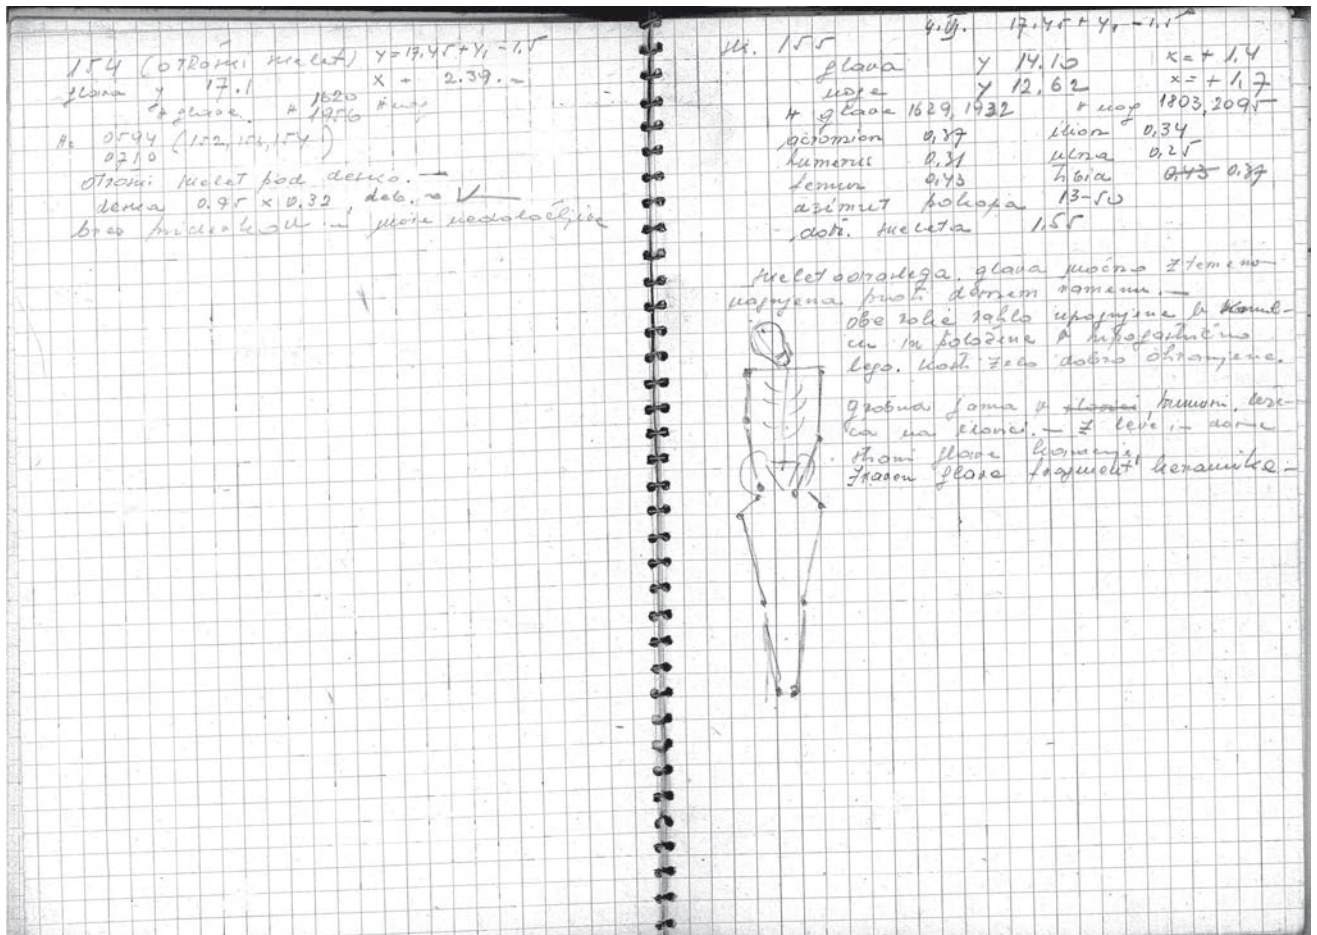 154 (otročni skelet) y=17,45+y, -1,5
glava y 17.1 x - 2.39.-
H glave. H 1620
1956
H: 0594 (152, 153, 154)
0710
otročni skelet pod desko. -
deska 0.95 x 0.32, deb.
brez pridatkov -
4.VI. 17.45 + y, -1,5
sk. 155
glava y 14.10 x = + 1.4
noge y 12.62 x = + 1,7
H glave 1629, 1932 H nog 1803, 2095
acromion 0,37 ilion 0,34
humerus 0.31 ulna 0,25
femur 0,43 tibia 0,43 0,37
azimut pokopa 13-50
dolž. skeleta 1,55
skelet odraslega. glava močno z temenom
nagnjena proti desnem ramenu. -
obe roke rahlo upognjene v komol-
cu in položene v hipogastrično
lego. Kosti zelo dobro ohranjene.
grobna jama v humusni,
ca na ilovici. - Z leve in desne
strani glave kamenje,
zraven glave fragment keramike -